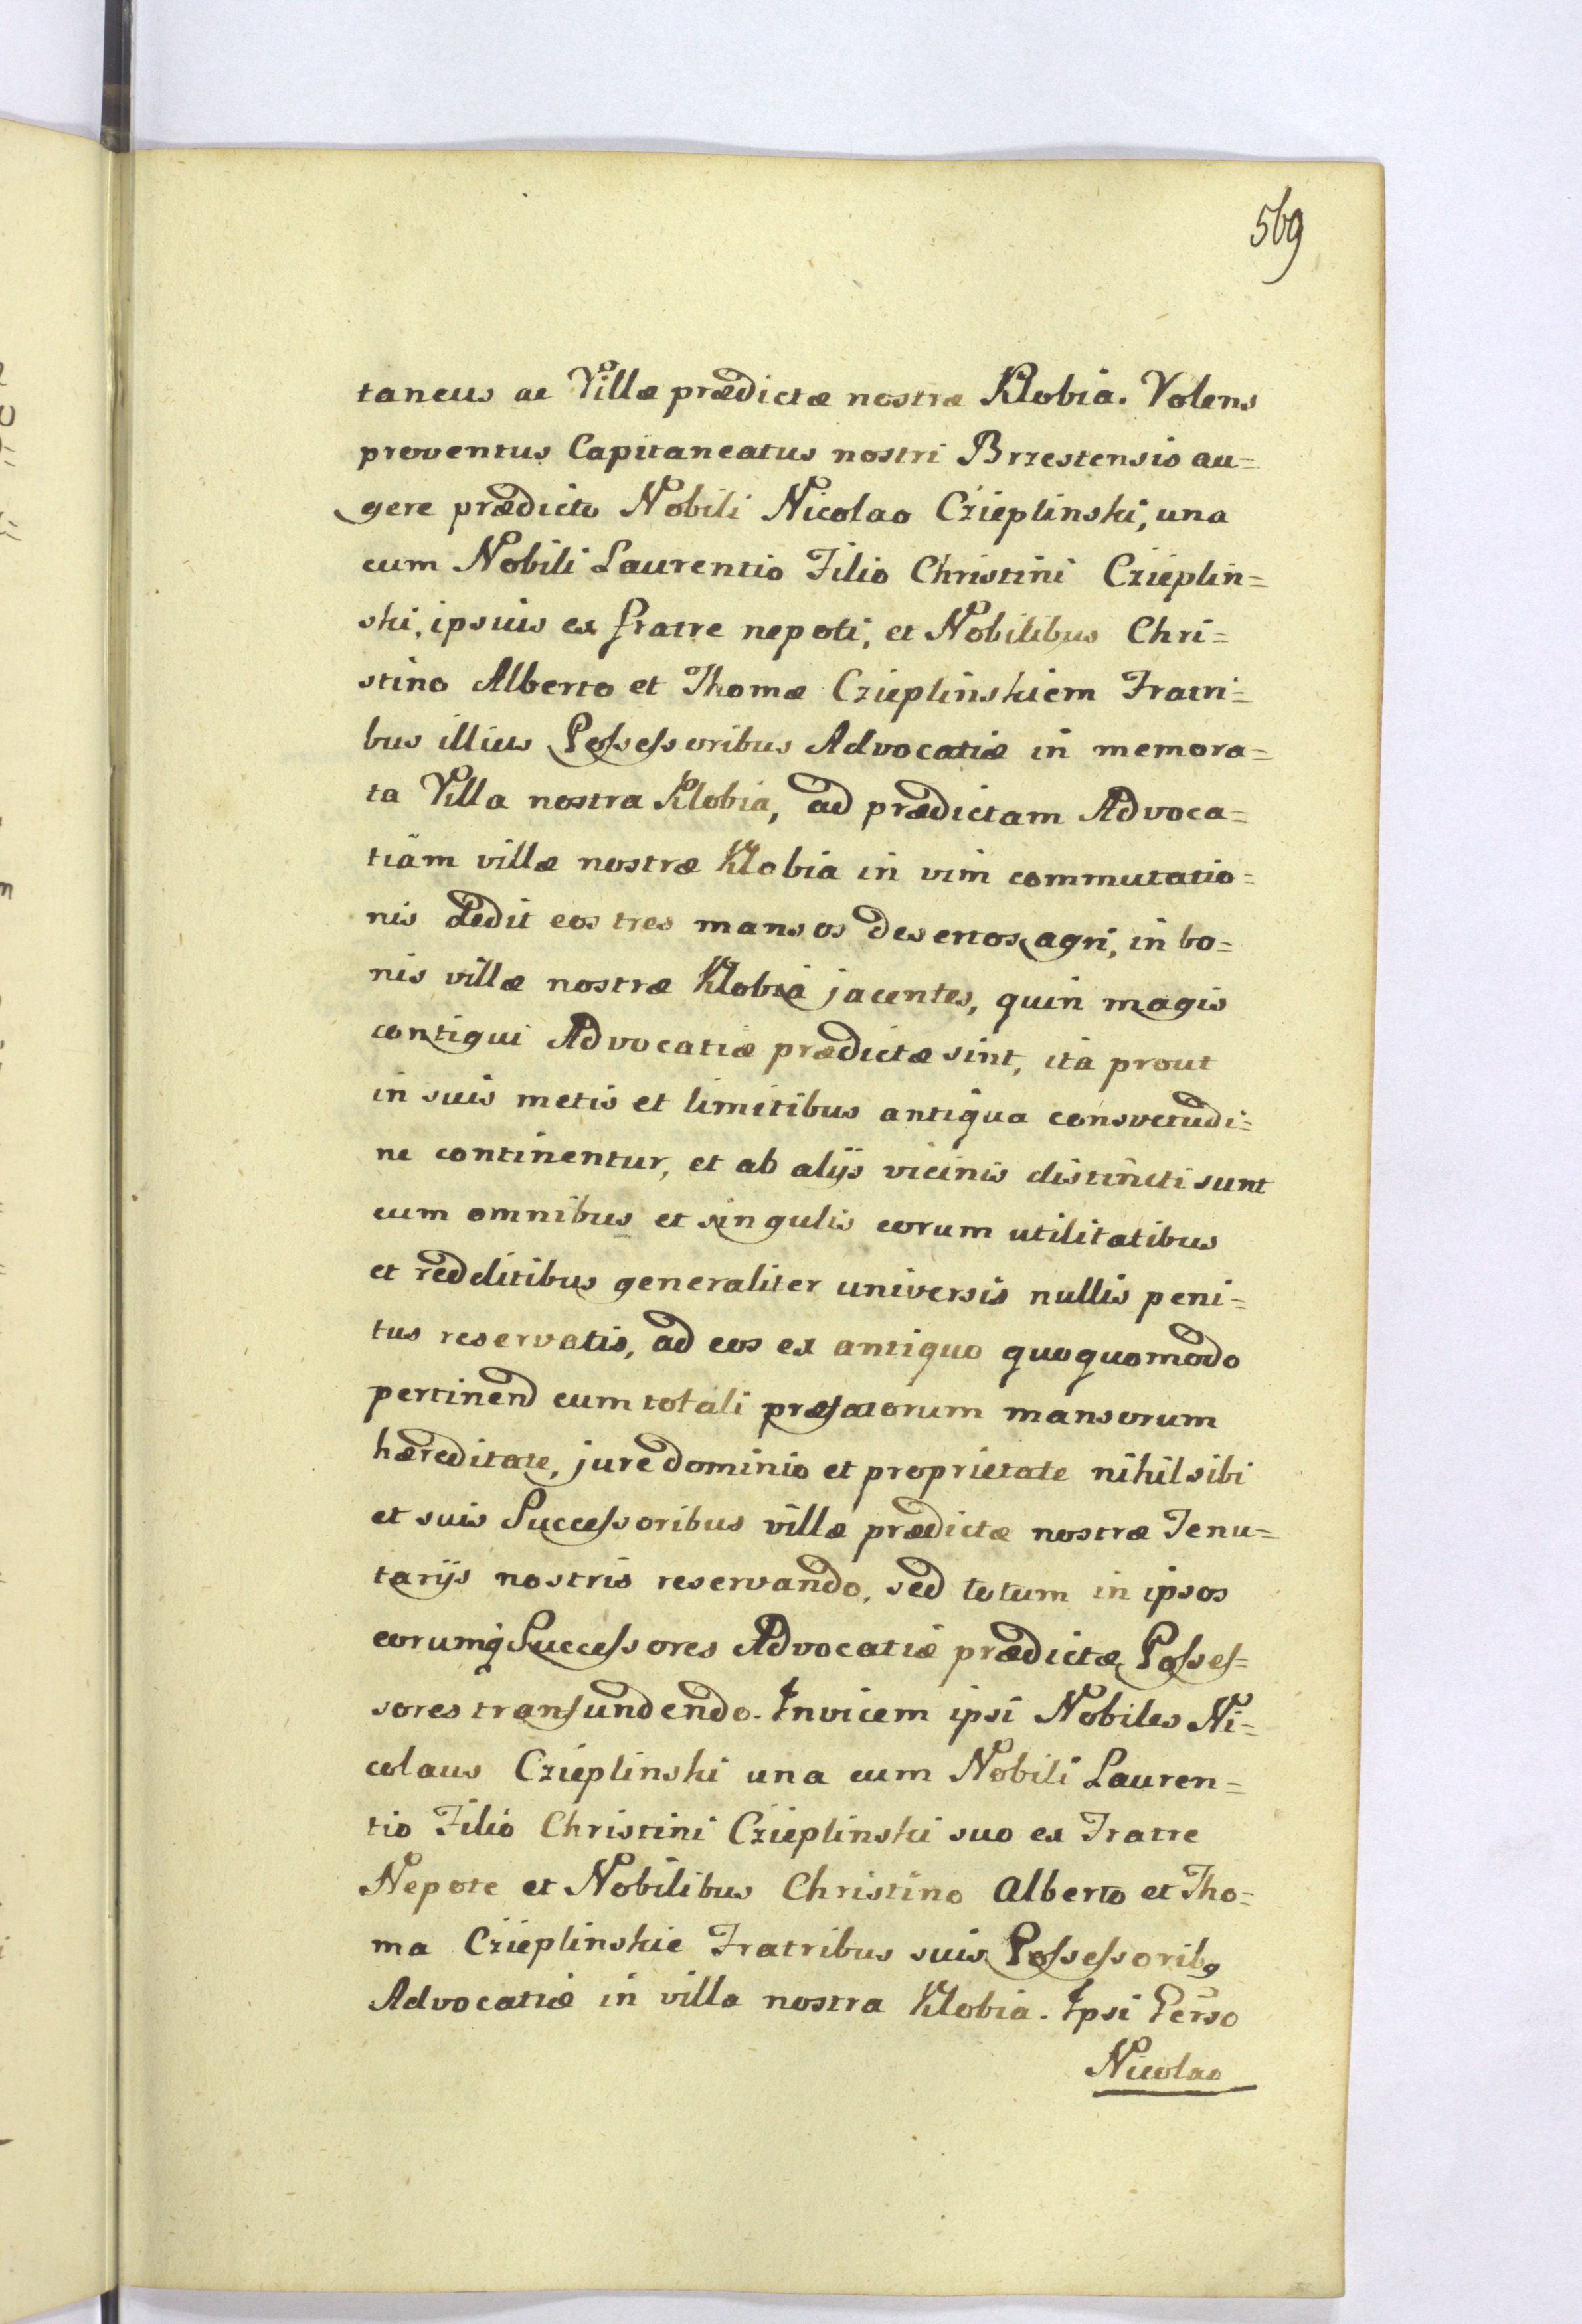 569
taneus ac Villæ prædictæ nostræ Klobia. Volens
proventus Capitaneatus nostri Brzestensis au=
gere prædicto Nobili Nicolao Czieplinski, una
cum Nobili Laurentio Filio Christini Czieplin=
ski, ipsuis ex fratre nepoti, et Nobilibus Chri=
stino Alberto et Thomæ Czieplinskiem Fratri=
bus illius Possessoribus Advocatiæ in memora=
ta Villa nostra Klobia, ad prædictam Advoca=
tiam villæ nostræ Klobia in vim commutatio=
nis dedit eos tres mansos desertos agri, in bo=
nis villæ nostræ Klobia jacentes, quin magis
contigui Advocatiæ prædictæ sint, ita prout
in suis metis et limitibus antiqua consvetudi=
ne continentur, et ab alijs vicinis distincti sunt
cum omnibus et singulis eorum utilitatibus
et redditibus generaliter universis nullis peni=
tus reservatis, ad eos ex antiquo quoquomodo
pertinend cum totali præfatorum mansorum
hæreditate, jure dominio et proprietate nihil sibi
et suis Successoribus villæ prædictæ nostræ Tenu=
tarijs nostris reservando, sed totum in ipsos
eorumq Successores Advocatiæ prædictæ Posses=
sores transfundendo. Invicem ipsi Nobiles Ni=
colaus Czieplinski una cum Nobili Lauren=
tio Filio Christini Czieplinski suo ex Fratre
Nepote et Nobilibus Christino Alberto et Tho=
ma Czieplinskie Fratribus suis Possessorib9
Advocatiæ in villa nostra Klobia. Ipsi Perso
Nicolao